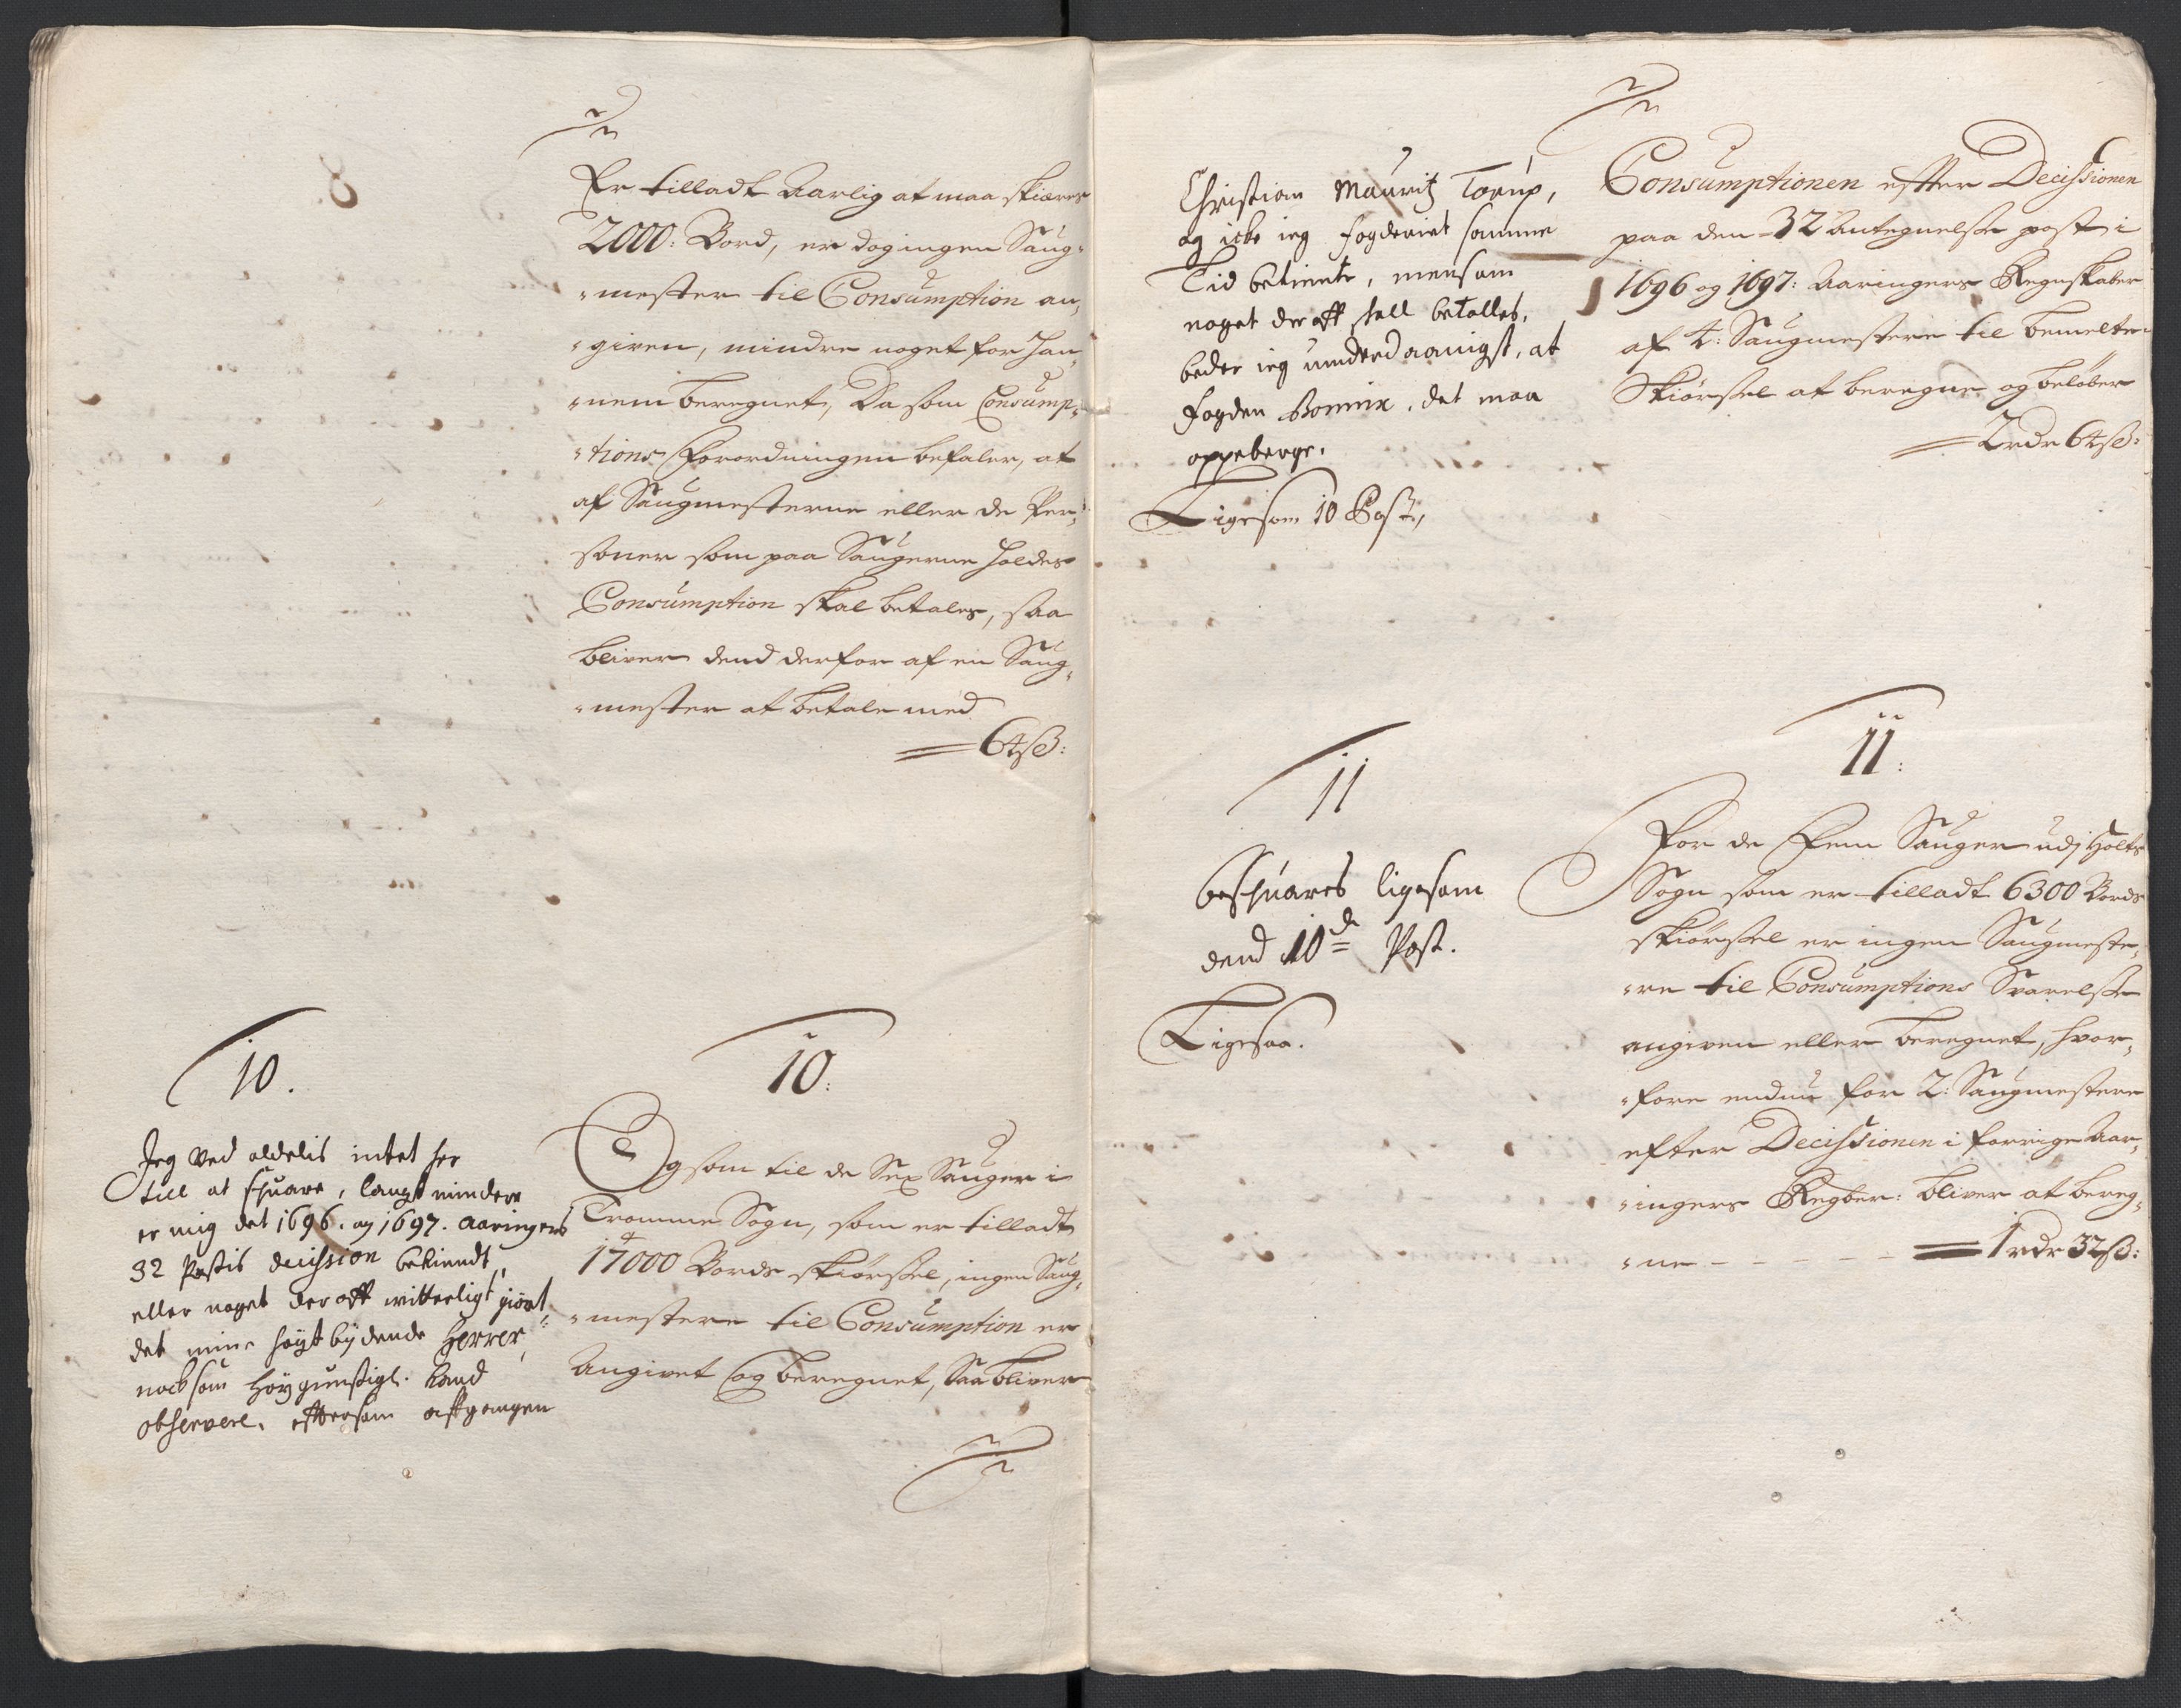 Er tilladt Aarlig at maa skiære
2000: Bord, er dog ingen Saug-
mester til Consumption an-
given, mindre noget for han-
nem beregnet, Da som Consump-
tions Forordningen befaler, at
af Saugmesterne eller de Per-
soner som paa Saugerne holdes
Consumption skal betales, saa
bliver dend derfor af en Saug-
mester at betale med
64 ß:
10.
Jeg ved aldelis intet her
till at suare, langt mindere
er mig det 1696. og 1697. aaringers
32 Postis decission bekiendt,
eller noget der aff witterligt giort,
det mine høyt bydende Herrer,
nocksom høygunstigl. kand
observere, effttersom affgangen
10:
Og som til de Sex Sauger i
Tromme Sogn, som er tilladt
17000 Bords skiørssel, ingen Saug-
mestere til Consumption er
Angivet og beregnet, Saa bliver
Christian Mauritz Torup,
og icke ieg fogderiet samme
Tid betiente, mens om
noget der aff skall betalles,
beder ieg underdaanigst, at
fogden Bonnix, det maa
oppeberge.
Ligesom 10 Post,
Consumptionen efter Decissionen
paa den 32 Antegnelse post i
1696 og 1697: Aaringers Regnskaber
af 4: Saugmestere til bemelte
Skiørssel at beregne og beløber
2 rdr 64 ß:
11
besuares ligesom
dend 10de Post.
Ligesaa.
11:
For de Fem Sauger udj Holts
Sogn som er tilladt 6300 Bords
skiørssel er ingen Saugmeste-
re til Consumptions Svarelse
angiven eller beregnet, hvor-
fore endnu for 2: Saugmestere
efter Decissionen i forrige Aar-
ingers Regber: bliver at bereg-
ne - - - - - 1 rdr 32 ß: